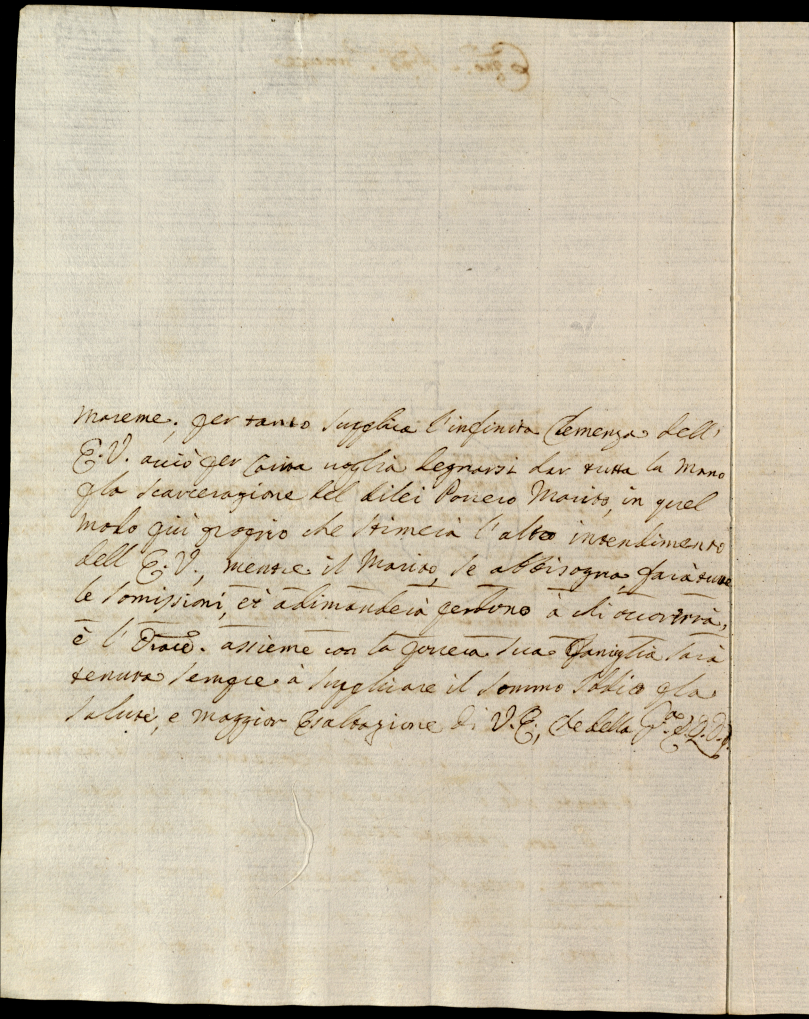 Mareme; per tanto supplica l'infinita Clemenza dell'
E.V. acciò per Carità voglia degnarsi dar tutta la Mano
p la scarcerazione del dilei Povero Marito, in quel
modo più proprio che stimerà l'alto intendimento
dell'E.V., mentre il Marito, se abbisogna, farà tutte
le somissioni, et adimanderà perdono à chi occorrerà,
è l'Orat.ce assieme con la povera sua Famiglia sarà
tenuta sempre à supplicare il sommo Iddio p la
salute, e maggior Esaltazione di V.E, che della